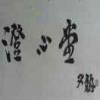 澄心堂